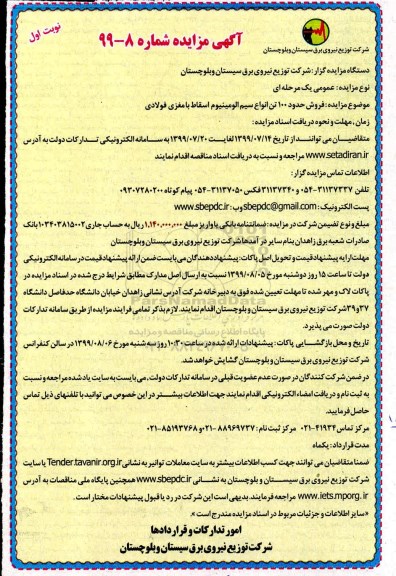 نوبت اول
آگهی مزایده شماره ۸-۹۹
شرکت توزیع نیروی برق سیستان وبلوچستان
دستگاه مزایده گزار: شرکت توزیع نیروی برق سیستان وبلوچستان
نوع مزایده: عمومی یک مرحله ای
موضوع مزایده: فروش حدود ۱۰۰ تن انواع سیم آلومینیوم اسقاط با مغزی فولادی
زمان، مهلت و نحوه دریافت اسناد مزایده:
متقاضیان می توانند از تاریخ ۱۳۹۹/۰۷/۱۴ لغایت ۱۳۹۹/۰۷/۲۰ به سامانه الکترونیکی تدارکات دولت به آدرس
www.setadiran.ir مراجعه و نسبت به دریافت اسناد مناقصه اقدام نمایند
اطلاعات تماس مزایده گزار:
تلفن ۳۱۱۳۷۳۳۷-۰۵۴ و ۳۱۱۳۷۳۴۰ فکس ۳۱۱۳۷۰۵۰-۰۵۴ پیام کوتاه ۰۹۳۰۷۲۸۰۲۰۰
پست الکترونیک: sbepdc@gmail.com وب: www.sbepdc.ir
مبلغ و نوع تضمین شرکت در مزایده: ضمانتنامه بانکی یا واریز مبلغ ۱,۱۴۰,۰۰۰,۰۰۰ ریال به حساب جاری ۰۱۰۳۴۰۳۸۱۵۰۰۲ بانک
صادرات شعبه برق زاهدان بنام سایر درآمدها شرکت توزیع نیروی برق سیستان وبلوچستان
مهلت ارایه پیشنهاد قیمت و تحویل اصل پاکات: پیشنهاد دهندگان می بایست ضمن ارائه پیشنهاد قیمت در سامانه الکترونیکی
دولت تا ساعت ۱۵ روز دوشنبه مورخ ۱۳۹۹/۰۸/۰۵ نسبت به ارسال اصل مدارک مطابق شرایط درج شده در اسناد مزایده در
پاکات لاک و مهر شده تا مهلت تعیین شده فوق به دبیرخانه شرکت آدرس نشانی زاهدان خیابان دانشگاه حدفاصل دانشگاه
۳۷و۳۹ شرکت توزیع نیروی برق سیستان وبلوچستان اقدام نمایند. لازم بذکر تمامی فرایند مزایده از طریق سامانه تدارکات
دولت صورت می پذیرد.
تاریخ و محل بازگشایی پاکات: پیشنهادات ارائه شده در ساعت ۱۰:۳۰ روز سه شنبه مورخ ۱۳۹۹/۰۸/۰۶ در سالن کنفرانس
شرکت توزیع نیروی برق سیستان و بلوچستان گشایش خواهد شد.
در ضمن شرکت کنندگان در صورت عدم عضویت قبلی در سامانه تدارکات دولت، می بایست به سایت یاد شده مراجعه و نسبت
به ثبت نام و دریافت امضاء الکترونیکی اقدام نمایند جهت اطلاعات بیشتر در این خصوص می توانید با تلفنهای ذیل تماس
حاصل فرمایید.
مرکز تماس ۴۱۹۳۴-۰۲۱ مرکز ثبت نام: ۸۸۹۶۹۷۳۷-۰۲۱ و ۸۵۱۹۳۷۶۸-۰۲۱
مدت قرارداد: یکماه
ضمنا متقاضیان می توانند جهت کسب اطلاعات بیشتر به سایت معاملات توانیر به نشانی Tender.tavanir.org.ir یا سایت
شرکت توزیع نیروی برق سیستان و بلوچستان به نشانی www.sbepdc.ir همچنین پایگاه ملی مناقصات به آدرس
www.iets.mporg.ir مراجعه فرمایند. بدیهی است این شرکت در رد یا قبول پیشنهادات مختار است.
«سایر اطلاعات و جزئیات مربوط در اسناد مزایده مندرج است»
امور تدارکات و قراردادها
شرکت توزیع نیروی برق سیستان وبلوچستان